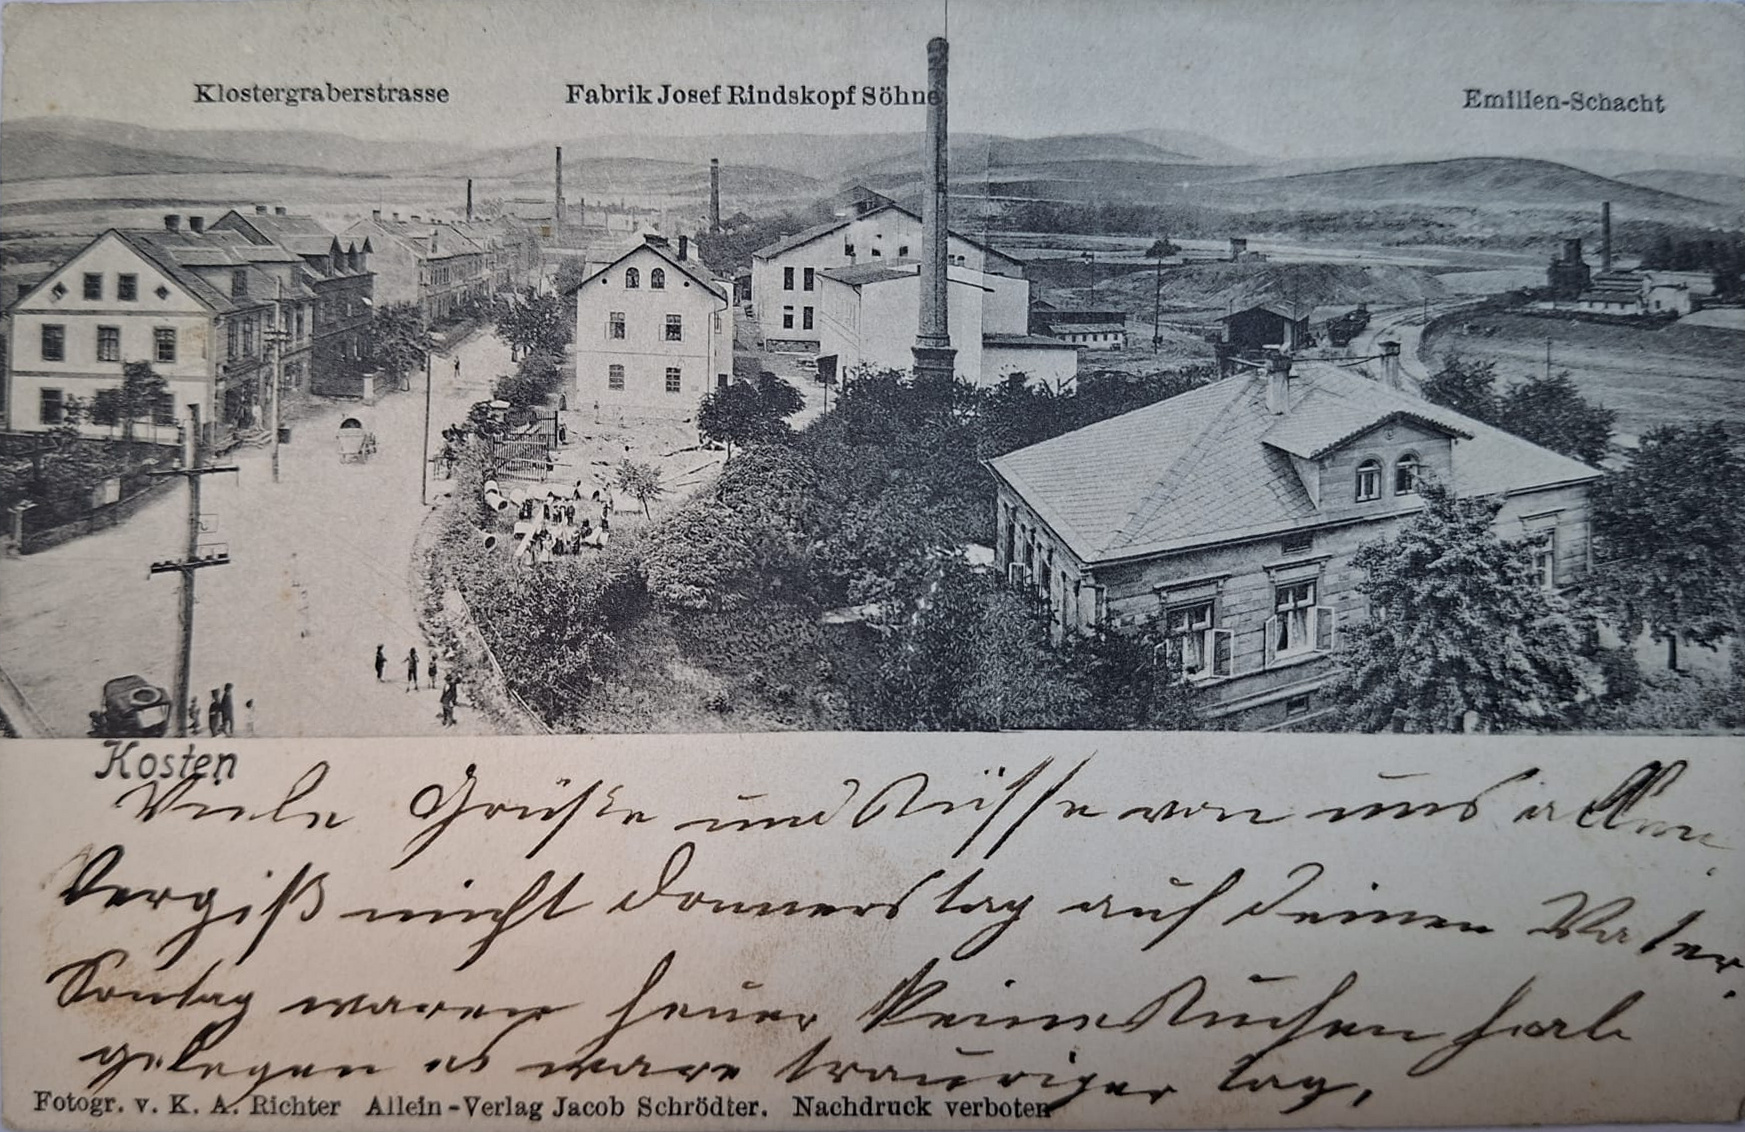 Klostergraberstrasse
Fabrik Josef Rindskopf Söhne
Emilien-Schacht
Kosten
Viele Grüße und Küsse von uns allen
Vergiß nicht Donnerstag auf deinen Vater.
Sontag waren heuer keine Kuchen
gelegen es ware trauriger tag,
Fotogr. v. K. A. Richter Allein-Verlag Jacob Schrödter. Nachdruck verboten